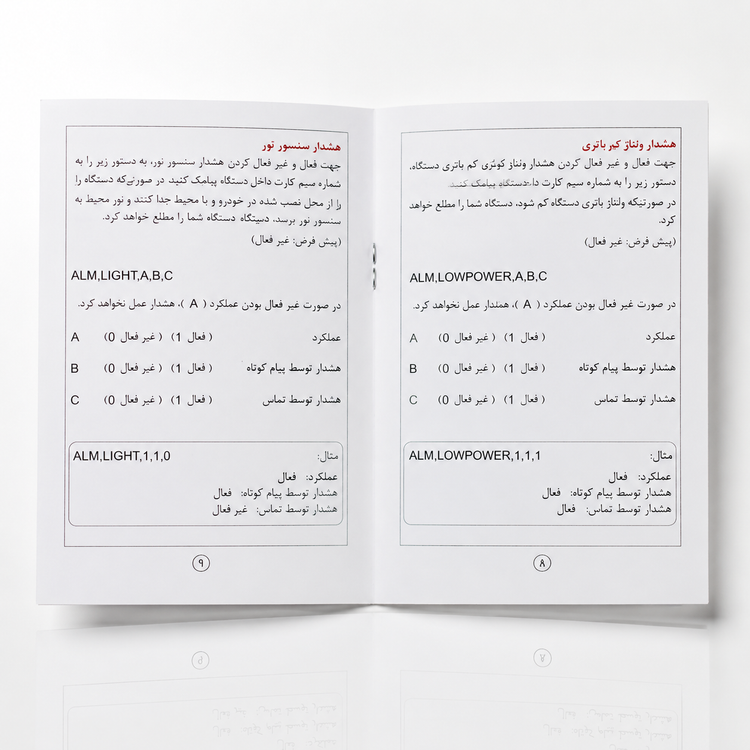 هشدار ولتاژ کم باتری
جهت فعال و غیر فعال کردن هشدار ولتاژ کم باتری دستگاه،
دستور زیر را به شماره سیم کارت دستگاه پیامک کنید.
در صورتیکه ولتاژ باتری دستگاه کم شود، دستگاه شما را مطلع خواهد
کرد.
(پیش فرض: غیر فعال)
ALM,LOWPOWER,A,B,C
در صورت غیر فعال بودن عملکرد ( A )، هشدار عمل نخواهد کرد.
عملکرد ( فعال 1) ( غیر فعال 0) A
هشدار توسط پیام کوتاه ( فعال 1) ( غیر فعال 0) B
هشدار توسط تماس ( فعال 1) ( غیر فعال 0) C
مثال: ALM,LOWPOWER,1,1,1
عملکرد: فعال
هشدار توسط پیام کوتاه: فعال
هشدار توسط تماس: فعال
۸
هشدار سنسور نور
جهت فعال و غیر فعال کردن هشدار سنسور نور، به دستور زیر را به
شماره سیم کارت داخل دستگاه پیامک کنید. در صورتی‌که دستگاه را
را از محل نصب شده در خودرو و با محیط جدا کنند و نور محیط به
سنسور نور برسد، دستگاه شما را مطلع خواهد کرد.
(پیش فرض: غیر فعال)
ALM,LIGHT,A,B,C
در صورت غیر فعال بودن عملکرد ( A )، هشدار عمل نخواهد کرد.
عملکرد ( فعال 1) ( غیر فعال 0) A
هشدار توسط پیام کوتاه ( فعال 1) ( غیر فعال 0) B
هشدار توسط تماس ( فعال 1) ( غیر فعال 0) C
مثال: ALM,LIGHT,1,1,0
عملکرد: فعال
هشدار توسط پیام کوتاه: فعال
هشدار توسط تماس: غیر فعال
۹